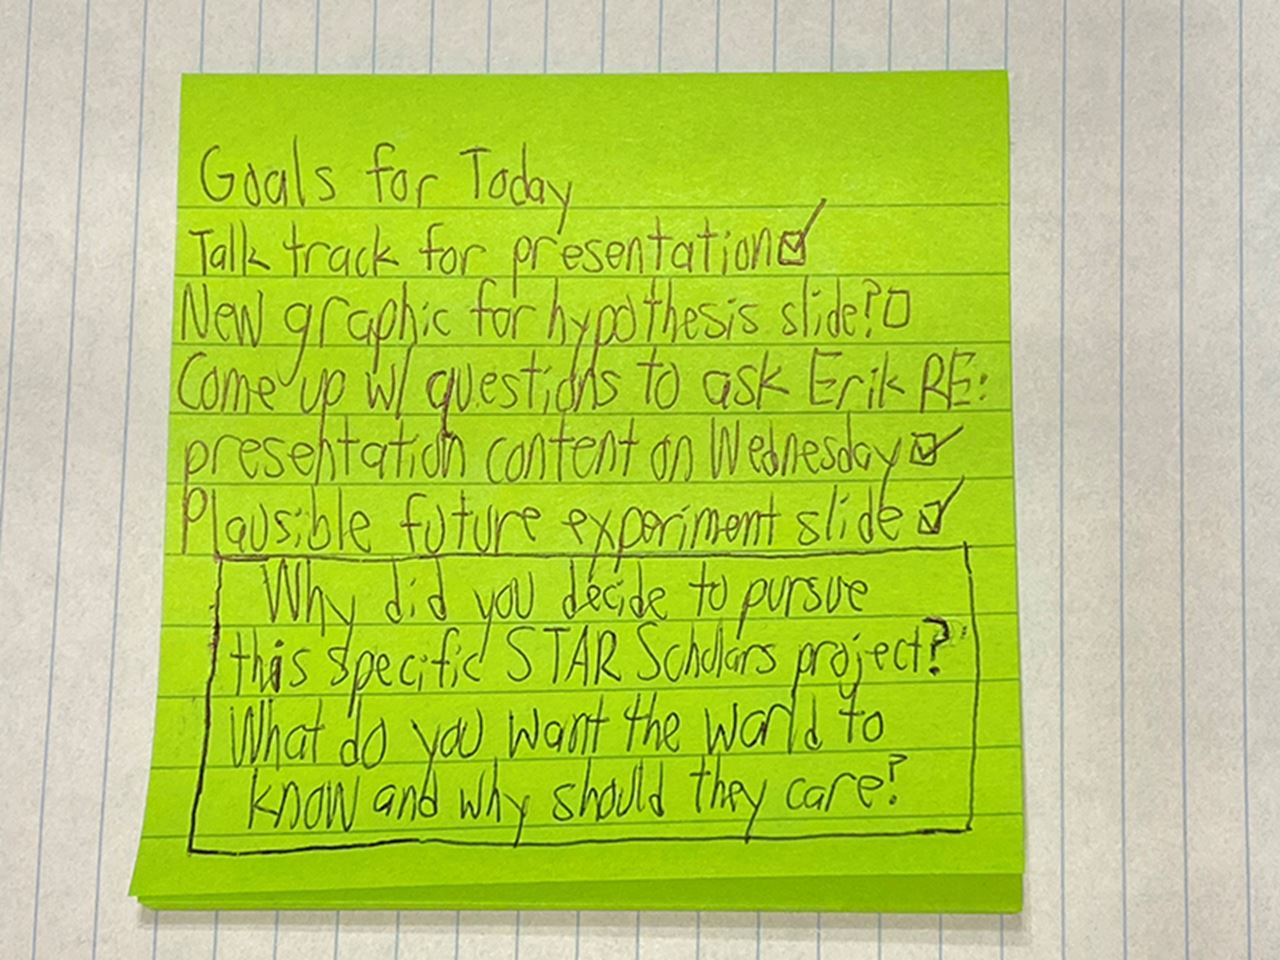 Goals for Today
Talk track for presentation ☑
New graphic for hypothesis slide? ☐
Come up w/ questions to ask Erik RE:
presentation content on Wednesday ☑
Plausible future experiment slide ☑
Why did you decide to pursue
this specific STAR Scholars project?
What do you want the world to
know and why should they care?